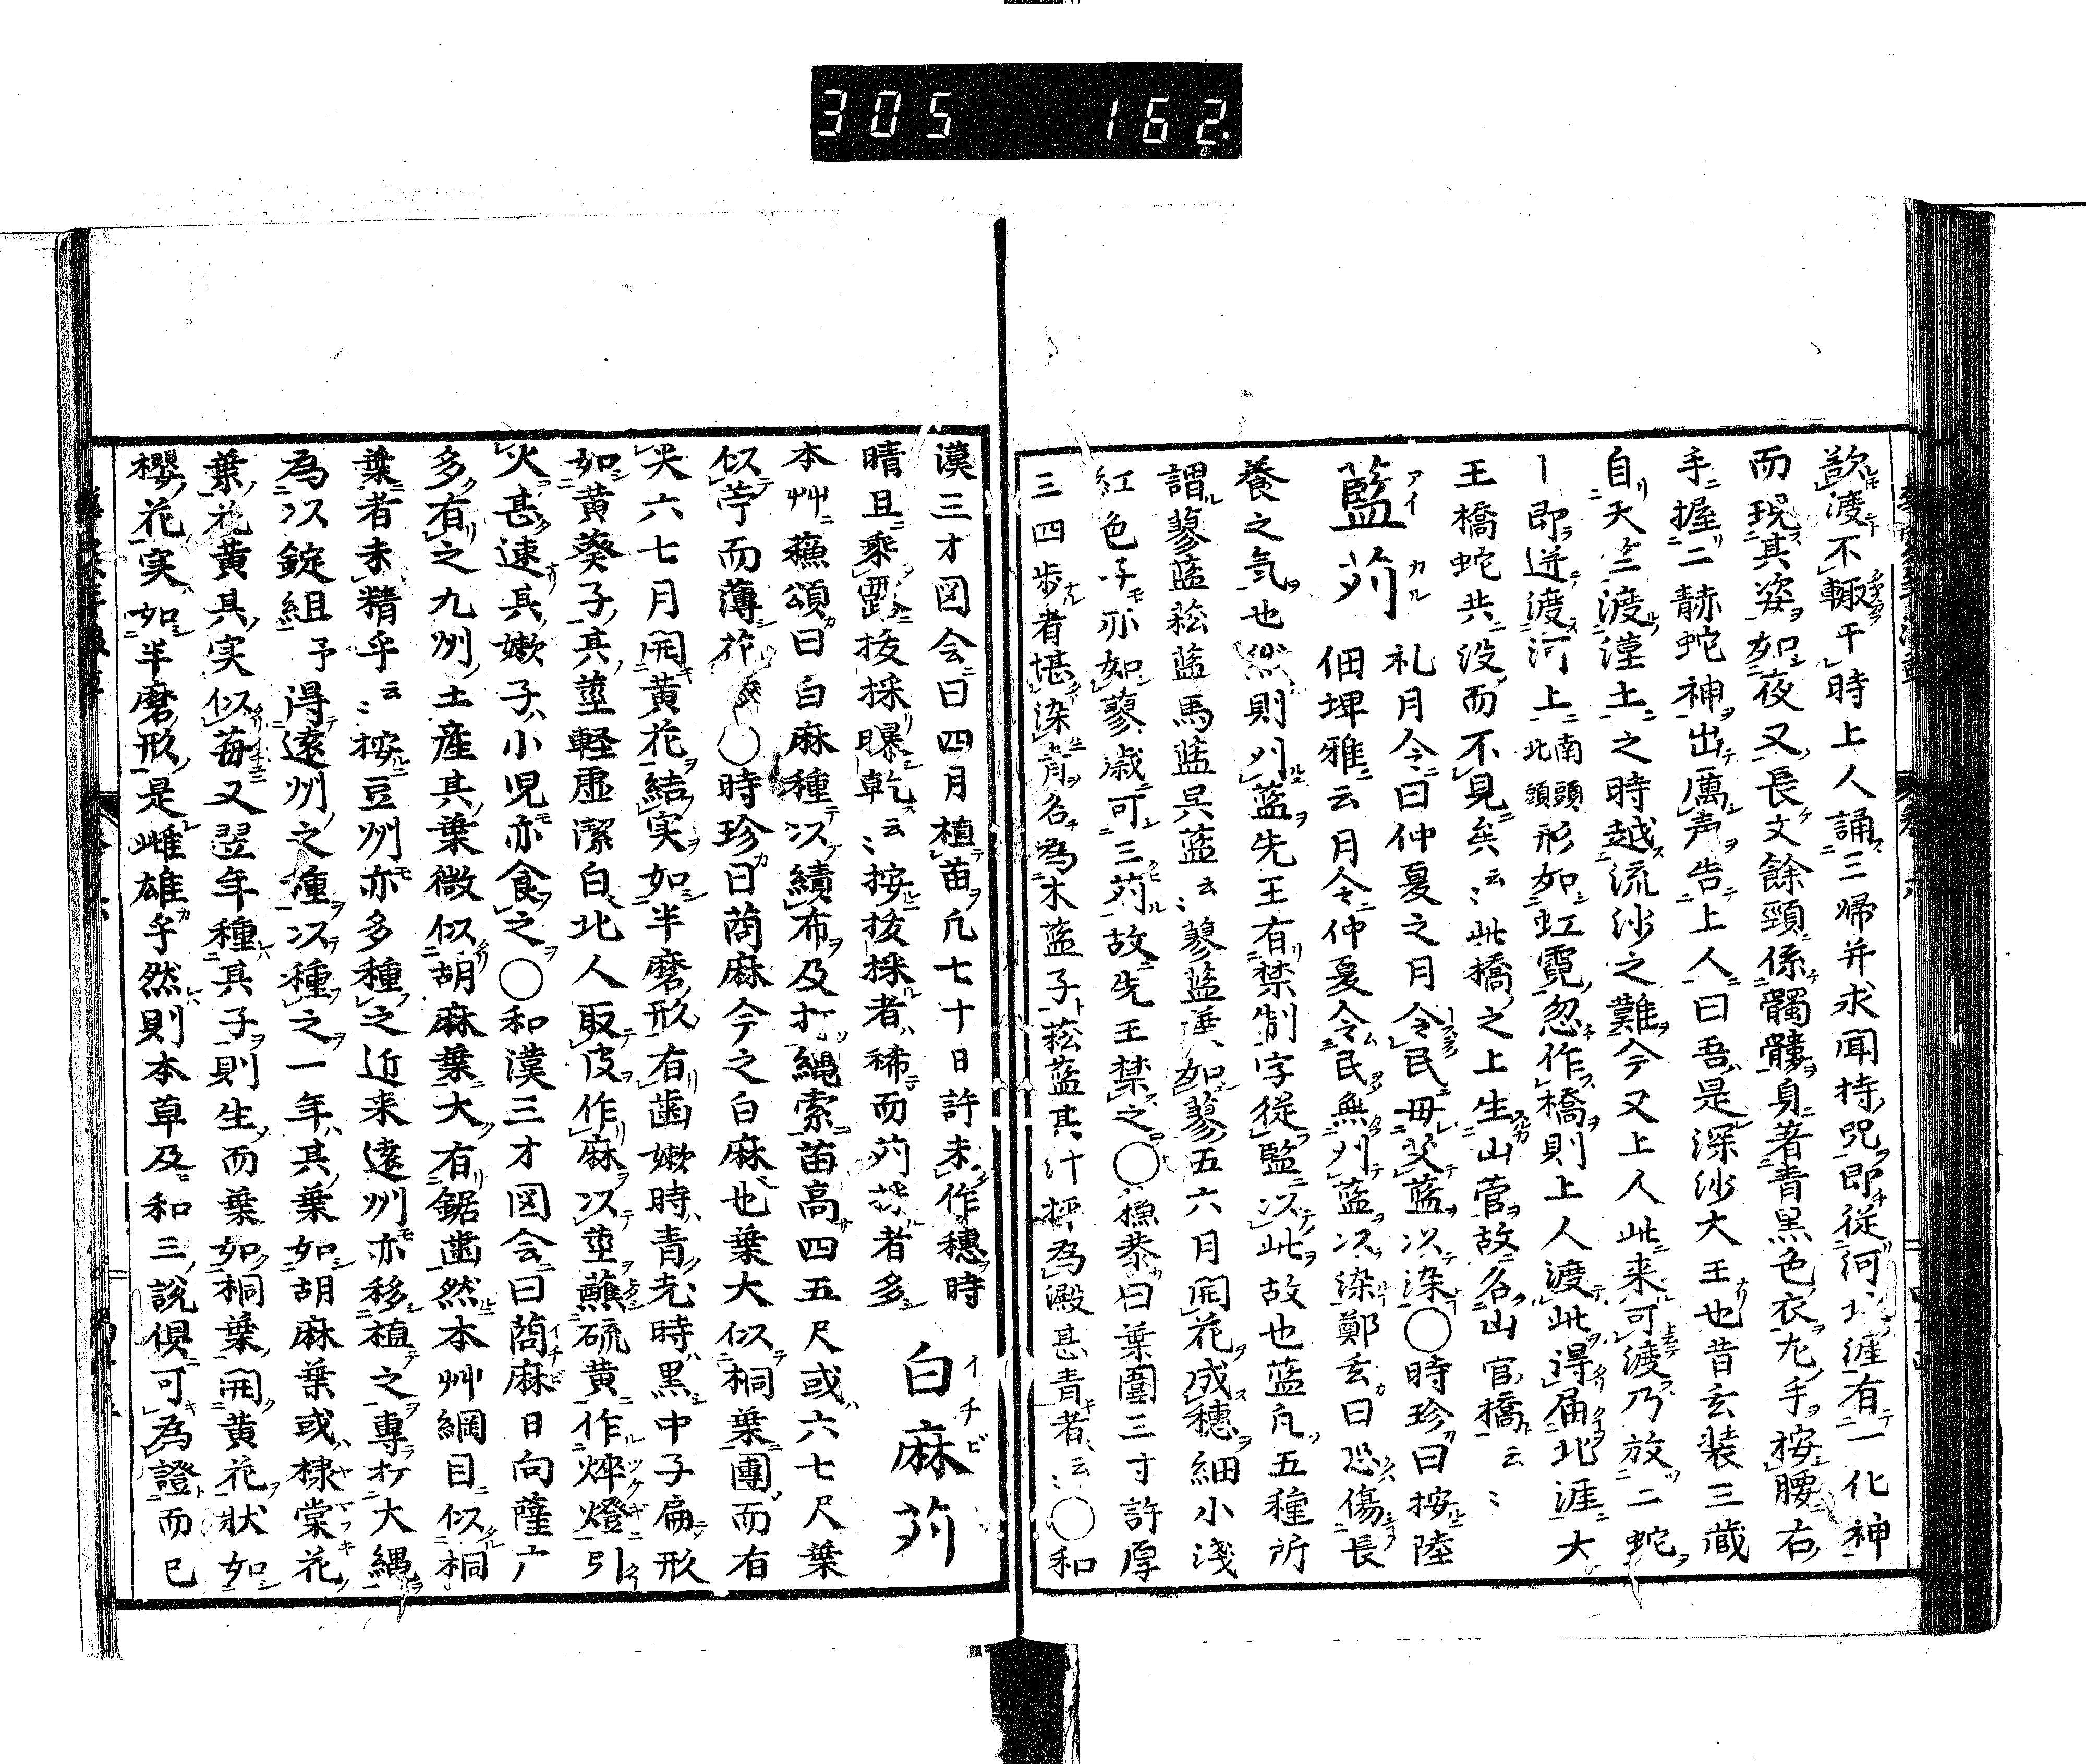 305 162
欲渡不輙干時上人誦三帰并求聞持咒即從河北涯有一化神
而現其姿如夜叉長丈餘頸係髑髏身著青黒色衣左手按腰右
手握二赫蛇神出厲声告上人曰吾是深沙大王也昔玄裝三蔵
自天竺渡漢土之時越流沙之難今又上人此来可渡乃放二蛇
即迸渡河上南頭北頭形如虹霓忽作橋則上人渡此得届北涯大
王橋蛇共没而不見矣云〻此橋之上生山菅故名山官橋云〻
藍苅 礼月令曰仲夏之月令民毋艾藍以染〇時珍曰按陸
佃埤雅云月令仲夏令民無刈藍以染鄭玄曰恐傷長
養之気也然則刈藍先王有禁制字従監以此故也藍凡五種所
謂蓼藍菘藍馬藍呉藍云〻蓼藍葉如蓼五六月開花成穂細小淺
紅色子亦如蓼歳可三苅故先王禁之〇蘓恭曰葉圍三寸許厚
三四歩者堪染青名為木藍子菘藍其汁抨為澱甚青者云〻〇和
漢三才図会曰四月植苗凡七十日許未作穗時
晴旦乘露抜採曝乾云〻按抜採者稀而苅採者多 白麻苅
本艸蘓頌曰白麻種以績布及打縄索苗高四五尺或六七尺葉
似苧而薄花〇時珍曰苘麻今之白麻也葉大似桐葉團而有
尖六七月開黄花結実如半磨形有歯嫩時青老時黒中子扁形
如黄葵子其莖軽虚潔白北人取皮作麻以莖蘸硫黄作焠燈引
火甚速其嫩子小児亦食之〇和漢三才図会曰苘麻日向薩广
多有之九州土産其葉微似胡麻葉大有鋸歯然本艸綱目似桐
葉者未精乎云〻按豆州亦多種之近来遠州亦移植之專打大縄
為以錠組予得遠州之種以種之一年其葉如胡麻葉或棣棠花
葉花黄其実似莓又翌年種其子則生而葉如桐葉開黄花状如
櫻花実如半磨形是雌雄乎然則本草及和三說倶可為證而已